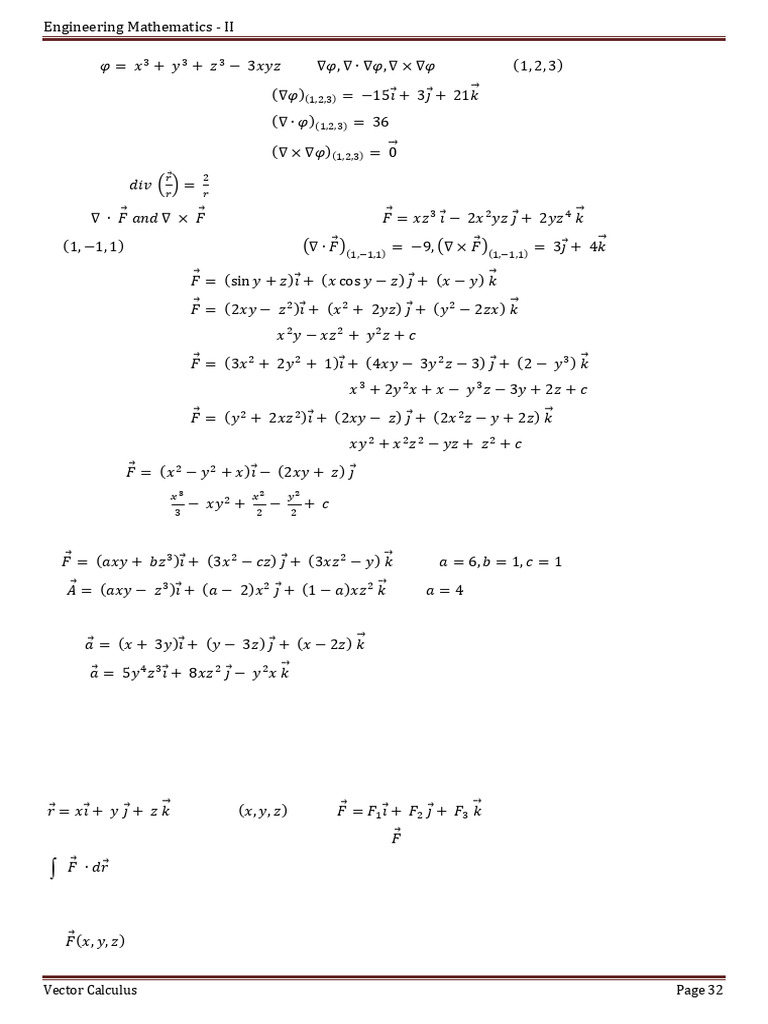 Engineering Mathematics - II
φ = x³ + y³ + z³ − 3xyz ∇φ, ∇ · ∇φ, ∇ × ∇φ (1, 2, 3)
(∇φ)₍₁,₂,₃₎ = −15i⃗ + 3j⃗ + 21k⃗
(∇ · φ)₍₁,₂,₃₎ = 36
(∇ × ∇φ)₍₁,₂,₃₎ = 0⃗
div (r⃗/r) = 2/r
∇ · F⃗ and ∇ × F⃗ F⃗ = xz³ i⃗ − 2x²yz j⃗ + 2yz⁴ k⃗
(1, −1, 1) (∇ · F⃗)₍₁,₋₁,₁₎ = −9, (∇ × F⃗)₍₁,₋₁,₁₎ = 3j⃗ + 4k⃗
F⃗ = (sin y + z)i⃗ + (x cos y − z) j⃗ + (x − y) k⃗
F⃗ = (2xy − z²)i⃗ + (x² + 2yz) j⃗ + (y² − 2zx) k⃗
x²y − xz² + y²z + c
F⃗ = (3x² + 2y² + 1)i⃗ + (4xy − 3y²z − 3) j⃗ + (2 − y³) k⃗
x³ + 2y²x + x − y³z − 3y + 2z + c
F⃗ = (y² + 2xz²)i⃗ + (2xy − z) j⃗ + (2x²z − y + 2z) k⃗
xy² + x²z² − yz + z² + c
F⃗ = (x² − y² + x)i⃗ − (2xy + z) j⃗
x³/3 − xy² + x²/2 − y²/2 + c
F⃗ = (axy + bz³)i⃗ + (3x² − cz) j⃗ + (3xz² − y) k⃗ a = 6, b = 1, c = 1
A⃗ = (axy − z³)i⃗ + (a − 2)x² j⃗ + (1 − a)xz² k⃗ a = 4
a⃗ = (x + 3y)i⃗ + (y − 3z) j⃗ + (x − 2z) k⃗
a⃗ = 5y⁴z³i⃗ + 8xz² j⃗ − y²x k⃗
r⃗ = xi⃗ + y j⃗ + z k⃗ (x, y, z) F⃗ = F₁i⃗ + F₂ j⃗ + F₃ k⃗
F⃗
∫ F⃗ · dr⃗
F⃗(x, y, z)
Vector Calculus Page 32